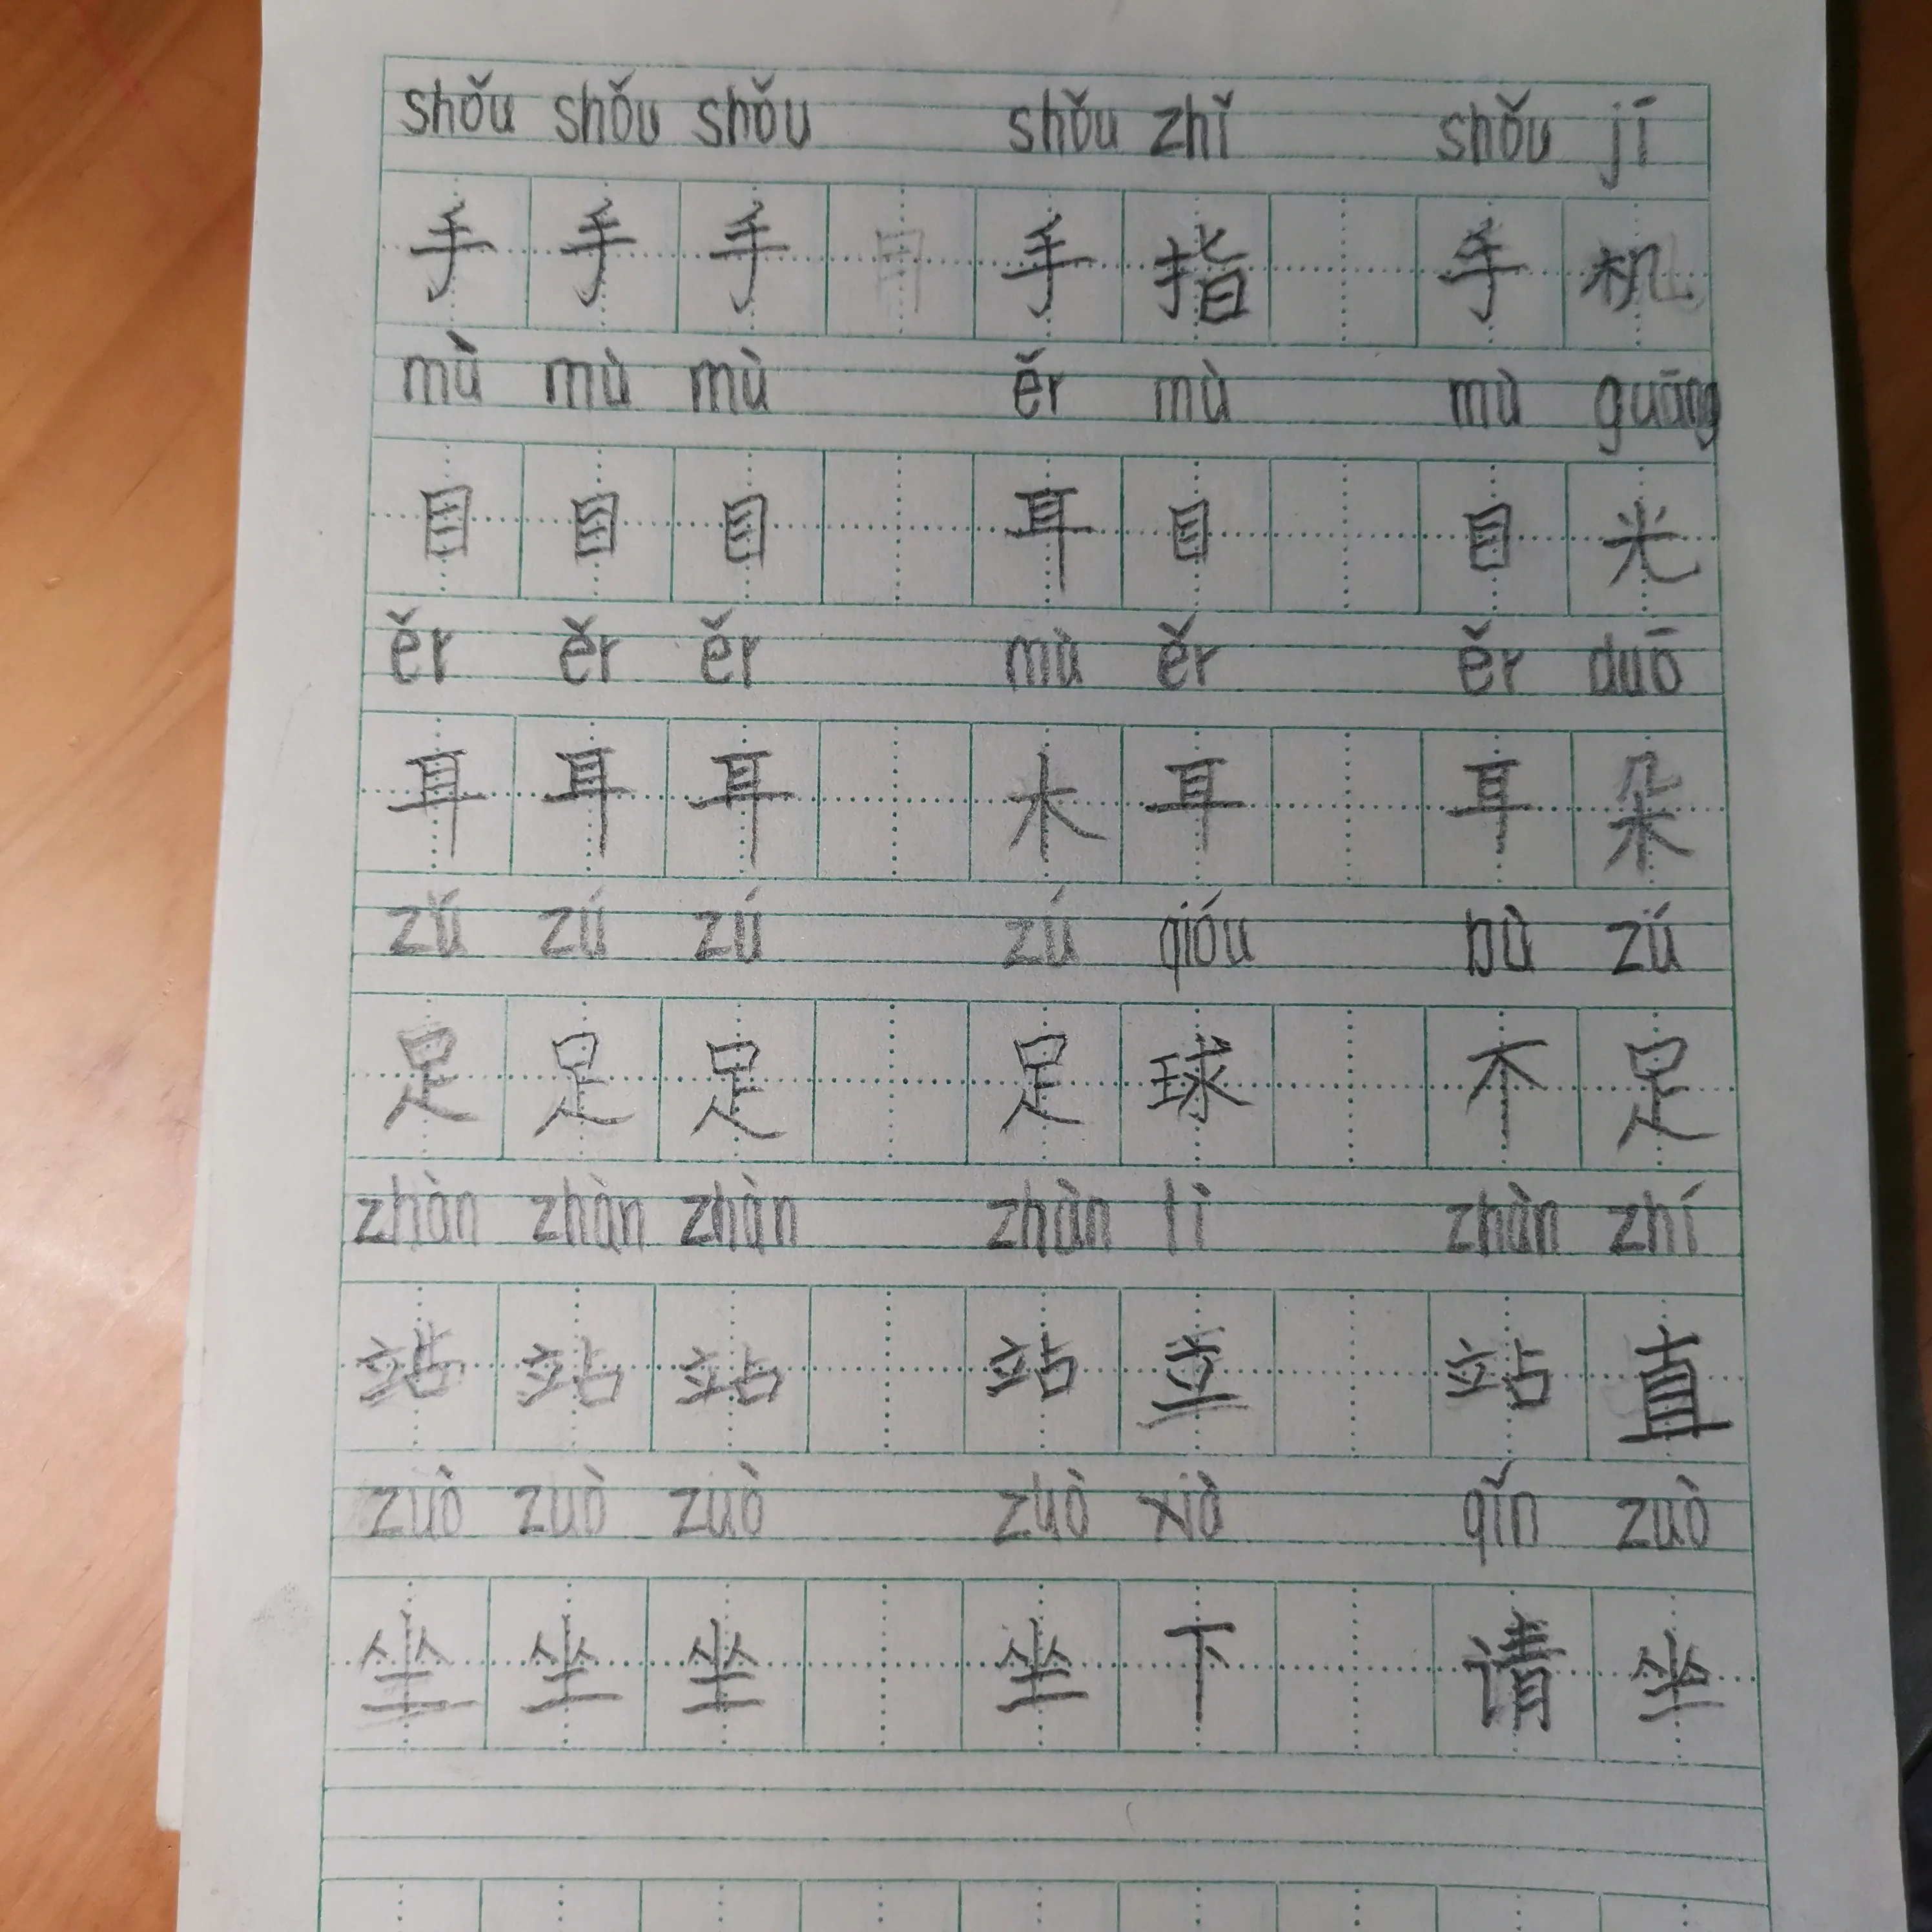 shǒu shǒu shǒu shǒu zhǐ shǒu jī
手 手 手 手 指 手 机
mù mù mù ěr mù mù guāng
目 目 目 耳 目 目 光
ěr ěr ěr mù ěr ěr duō
耳 耳 耳 木 耳 耳 朵
zú zú zú zú qióu bù zú
足 足 足 足 球 不 足
zhàn zhàn zhàn zhàn lì zhàn zhí
站 站 站 站 立 站 直
zuò zuò zuò zuò xià qǐn zuò
坐 坐 坐 坐 下 请 坐